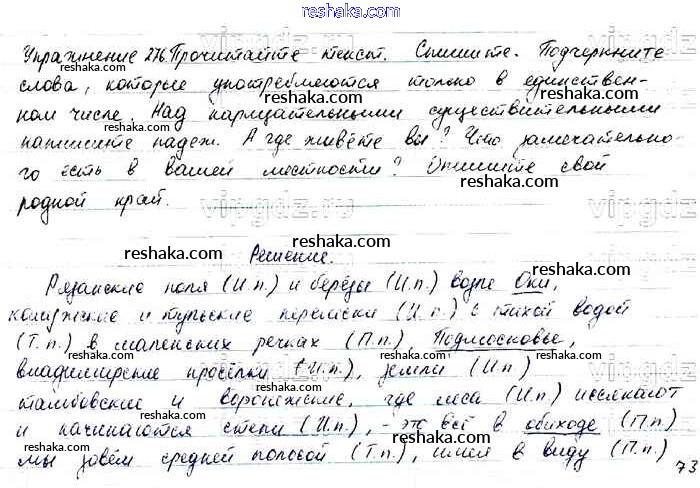 reshaka.com
Упражнение 276. Прочитайте текст. Спишите. Подчеркните
reshaka.com reshaka.com
слова, которые употребляются только в единствен-
reshaka.com reshaka.com
ном числе. Над нарицательными существительными
reshaka.com reshaka.com
напишите падеж. А где живёте вы? Что замечательно-
го есть в вашей местности? Опишите свой
reshaka.com
родной край.
vipgdz.ru vipgdz
reshaka.com
Решение. reshaka.com
Рязанские поля (И.п.) и берёзы (И.п.) возле Оки,
reshaka.com reshaka.com
калужские и тульские перелески (И.п.) с тихой водой
reshaka.com
(Т.п.) в маленских речках (П.п.), Подмосковье,
reshaka.com reshaka.com
владимирские просёлки (И.п.), земли (И.п)
reshaka.com reshaka.com reshaka.com
тамбовские и воронежские, где леса (И.п.) иссякают
reshaka.com
и начинаются степи (И.п.), - это всё в обиходе (П.п)
reshaka.com reshaka.com reshaka.com
мы зовём средней полосой (Т.п.), имея в виду (П.п.)
73